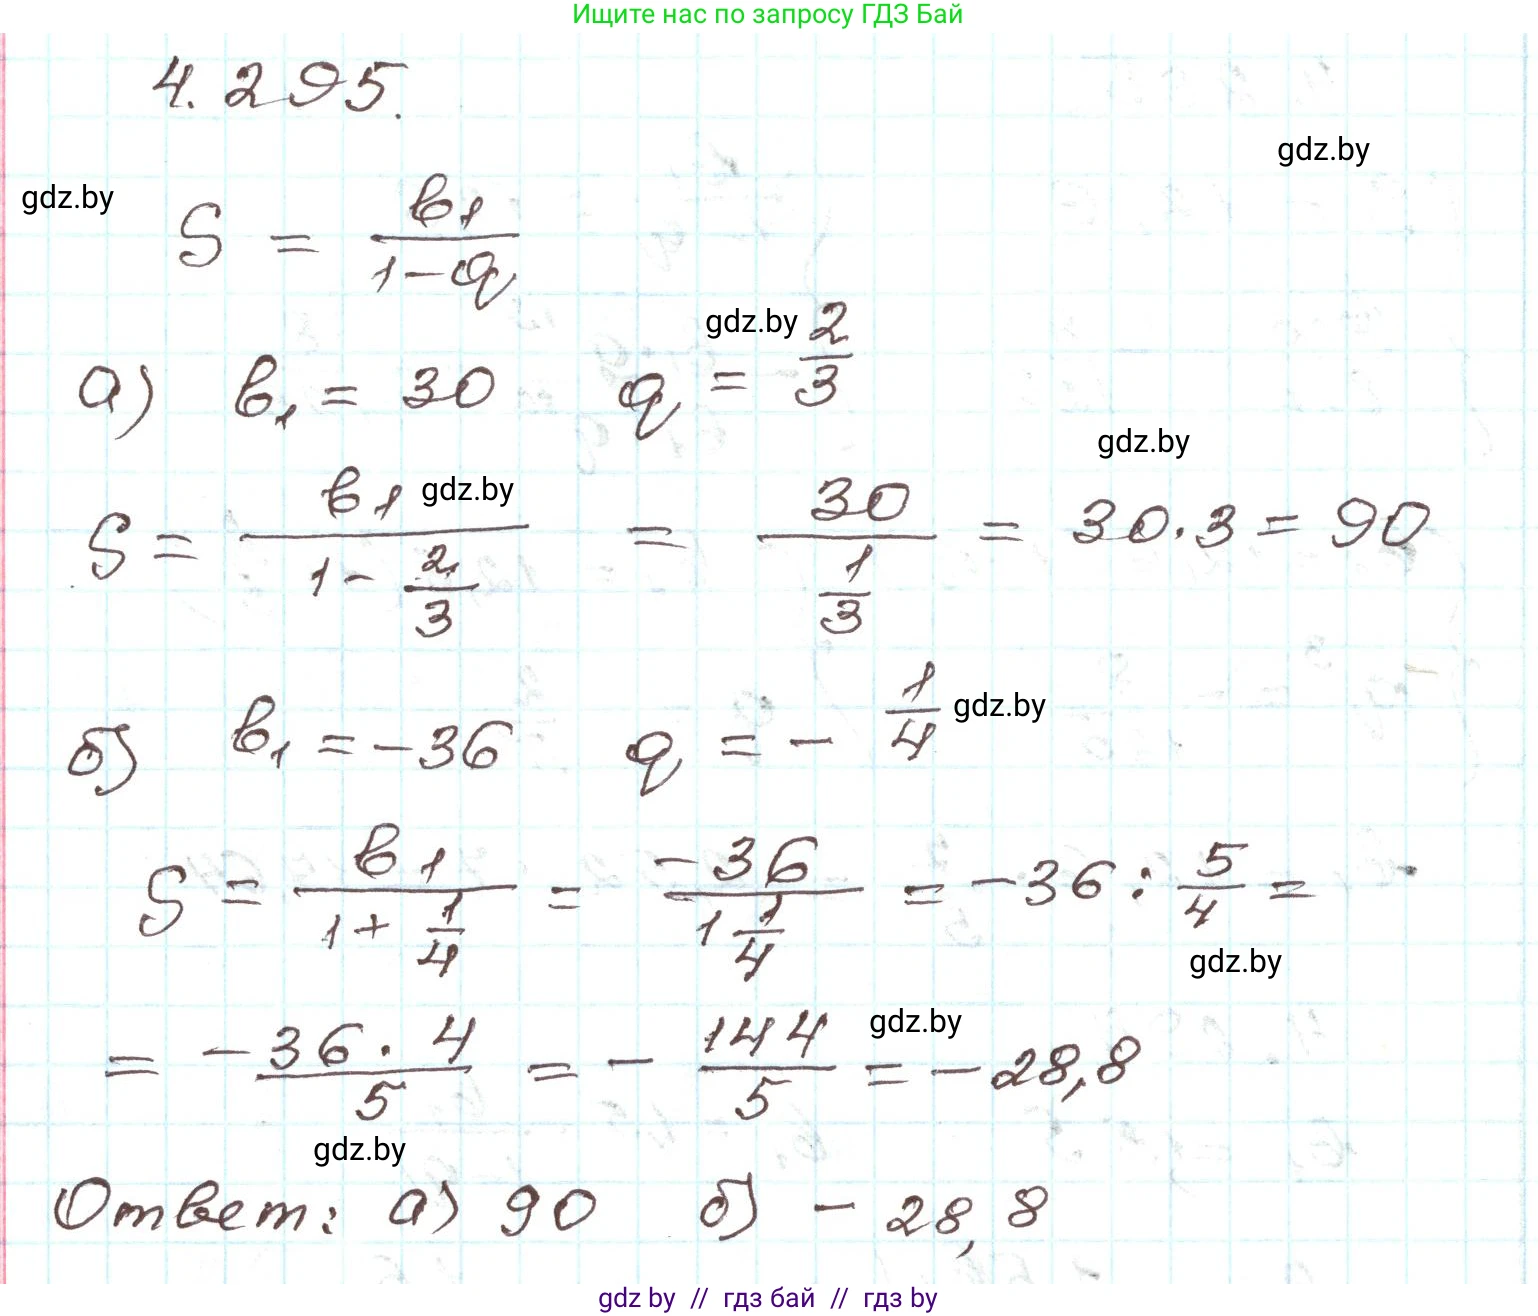 Ищите нас по запросу ГДЗ Бай
4.295.
gdz.by
gdz.by
S = в₁/(1-q)
gdz.by
а) в₁ = 30 q = 2/3
gdz.by
gdz.by
S = в₁/(1 - 2/3) = 30/(1/3) = 30·3 = 90
б) в₁ = -36 q = - 1/4 gdz.by
S = в₁/(1 + 1/4) = -36/(1 1/4) = -36 : 5/4 =
gdz.by
gdz.by
= - 36·4/5 = - 144/5 = - 28,8
gdz.by
Ответ: а) 90 б) - 28,8
gdz by // гдз бай // гдз by